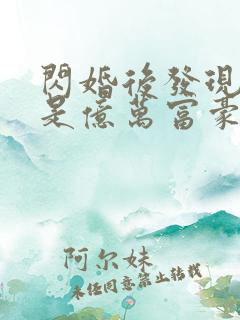 閃婚後發現
是億萬富豪
阿尔妹
未经同意禁止转载